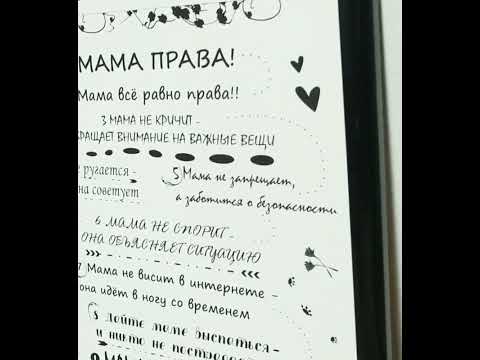 МАМА ПРАВА!
Мама всё равно права!!
3 МАМА НЕ КРИЧИТ -
ВНИМАНИЕ НА ВАЖНЫЕ ВЕЩИ
ругается -
советует
5 Мама не запрещает,
а заботится о безопасности
6 МАМА НЕ СПОРИТ -
ОНА ОБЪЯСНЯЕТ СИТУАЦИЮ
7 Мама не висит в интернете -
она идёт в ногу со временем
8 дайте маме выспаться -
и никто не